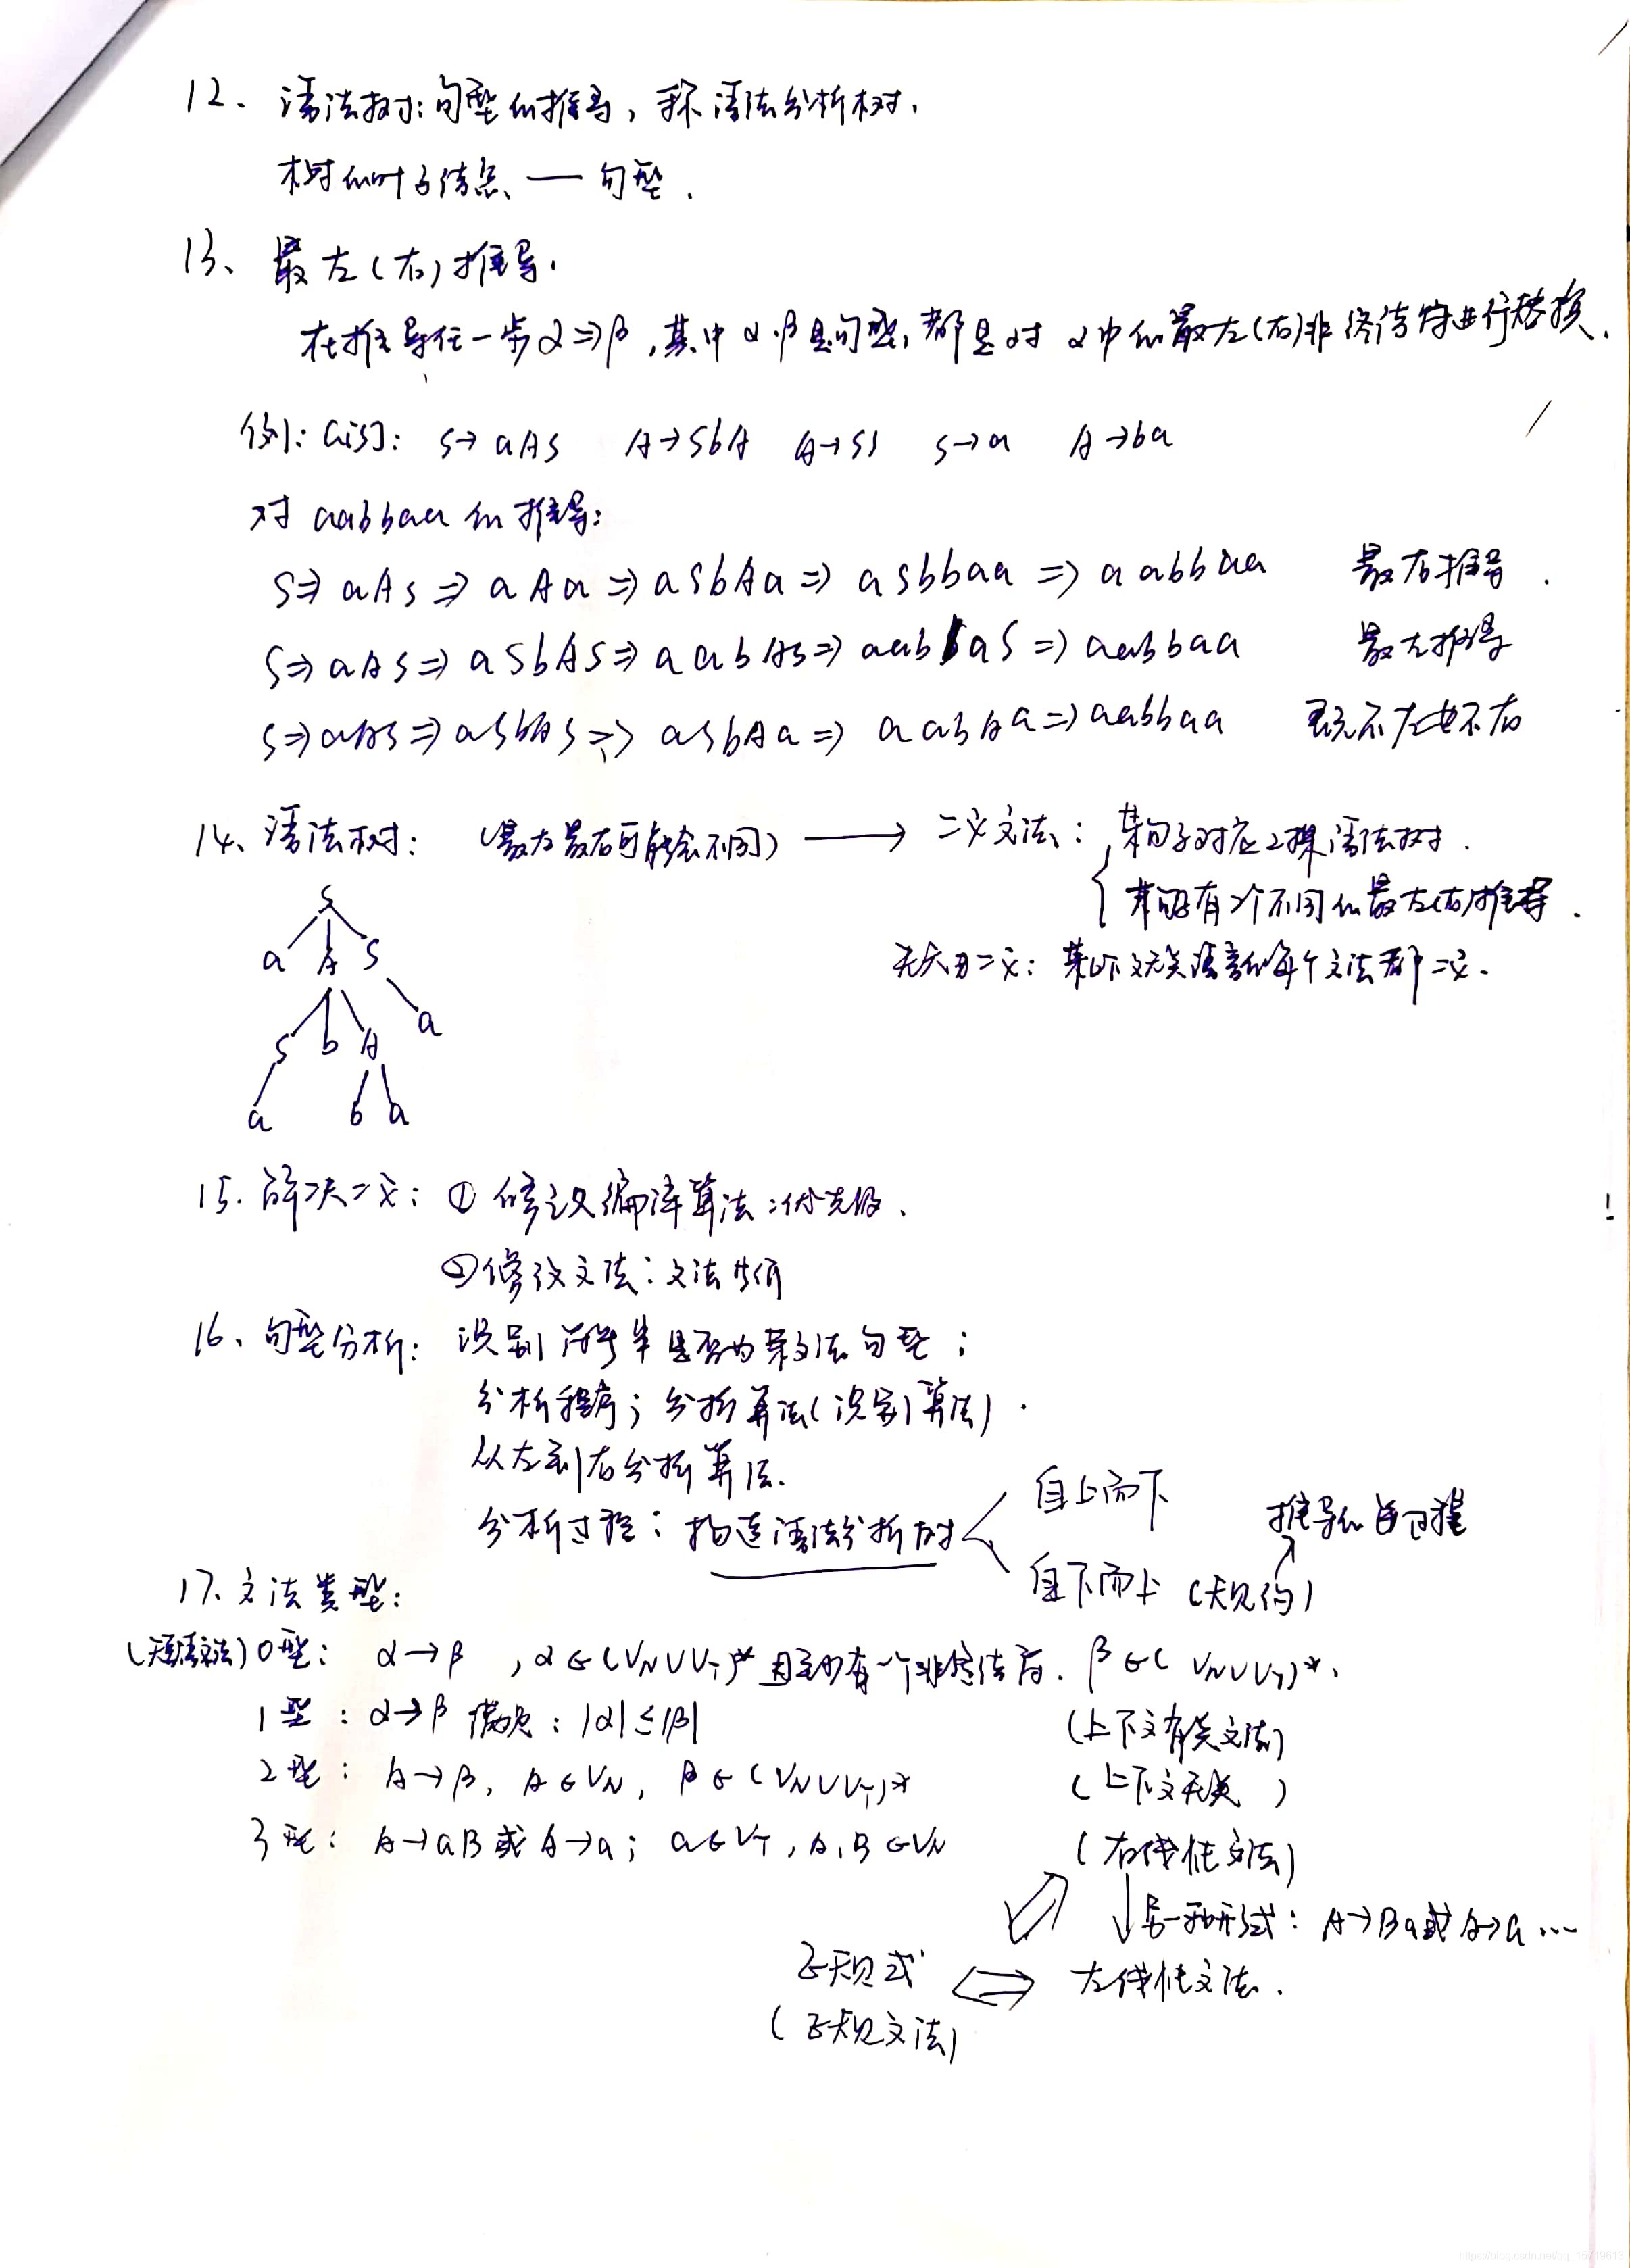 12、语法树：句型的推导，称语法分析树．
树的叶子结点 — 句型．
13、最左(右)推导．
在推导任一步α⇒β，其中α、β是句型，都是对α中的最左(右)非终结符进行替换．
例：G[S]： S→aAS A→SbA A→SS S→a A→ba
对aabbaa的推导：
S⇒aAS⇒aAa⇒aSbAa⇒aSbbaa⇒aabbaa 最右推导．
S⇒aAS⇒aSbAS⇒aabAS⇒aabbaS⇒aabbaa 最左推导
S⇒aAS⇒aSbAS⇒aSbAa⇒aabAa⇒aabbaa 既不左也不右
14、语法树： (最左最右可能会不同) ⟶ 二义文法： 某句子对应2棵语法树．
某句子有2个不同的最左(右)推导．
先天的二义：某上下文无关语言的每个文法都二义．
S
a A S
S b A a
a b a
15．解决二义：① 修改编译算法：优先级．
②修改文法：文法等价
16、句型分析： 识别符号串是否为某文法句型；
分析程序；分析算法(识别算法)．
从左到右分析算法．
分析过程：构造语法分析树 自上而下
自下而上 (规约) 推导的逆过程
17、文法类型：
(短语文法) 0型： α→β ，α∈(VN∪VT)* 且至少有一个非终结符．β∈(VN∪VT)*．
1型：α→β 满足：|α|≤|β| (上下文有关文法)
2型： A→β，A∈VN，β∈(VN∪VT)* (上下文无关)
3型： A→aB或A→a；a∈VT，A，B∈VN (右线性文法)
另一种形式：A→Ba或A→a …
正规式 ⟺ 左线性文法．
(正规文法)
https://blog.csdn.net/qq_15719613